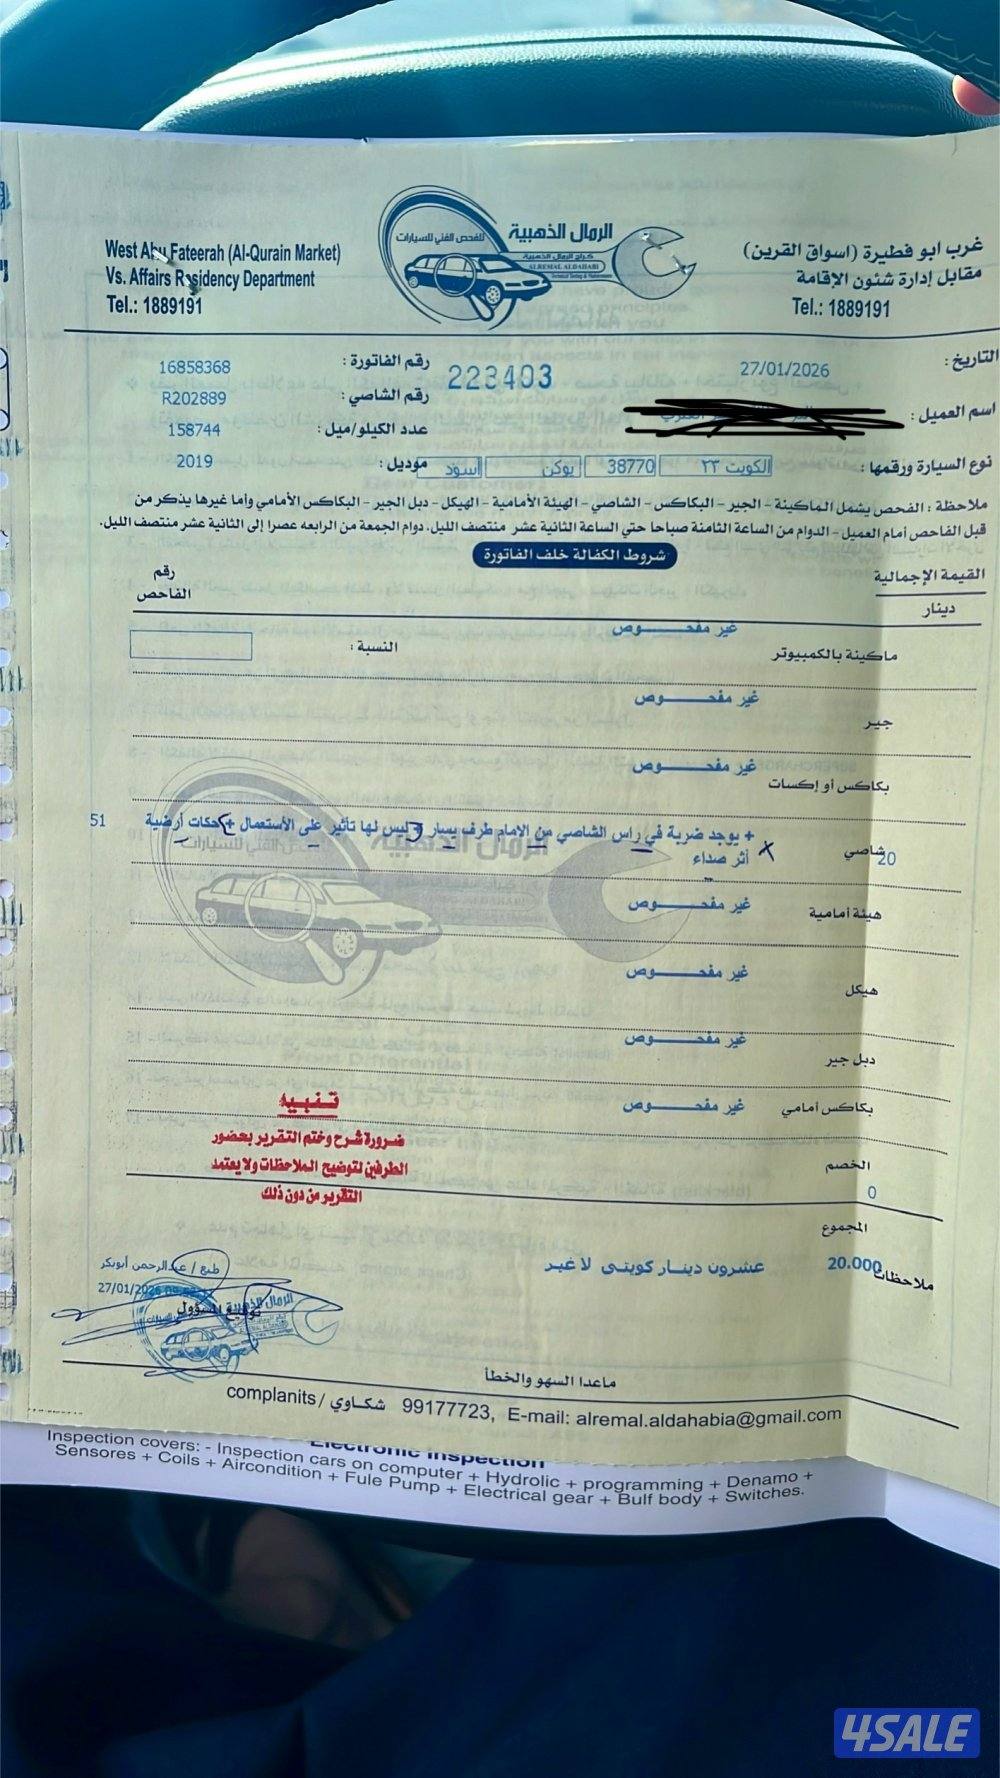 الرمال الذهبية
للفحص الفني للسيارات
كراج الرمال الذهبية
ALREMAL ALDAHABI
غرب ابو فطيرة (اسواق القرين)
مقابل إدارة شئون الإقامة
Tel.: 1889191
West Abu Fateerah (Al-Qurain Market)
Vs. Affairs Residency Department
Tel.: 1889191
التاريخ: 27/01/2026
223403
رقم الفاتورة: 16858368
اسم العميل:
رقم الشاصي: R202889
عدد الكيلو/ميل: 158744
نوع السيارة ورقمها: الكويت ٢٣ 38770 يوكن اسود
موديل: 2019
ملاحظة: الفحص يشمل الماكينة - الجير - البكاكس - الشاصي - الهيئة الأمامية - الهيكل - دبل الجير - البكاكس الأمامي وأما غيرها يذكر من
قبل الفاحص أمام العميل - الدوام من الساعة الثامنة صباحا حتي الساعة الثانية عشر منتصف الليل. دوام الجمعة من الرابعه عصرا إلى الثانية عشر منتصف الليل.
شروط الكفالة خلف الفاتورة
القيمة الإجمالية
دينار
رقم
الفاحص
ماكينة بالكمبيوتر غير مفحوص النسبة:
جير غير مفحوص
بكاكس أو إكسات غير مفحوص
شاصي 20 + يوجد ضربة في راس الشاصي من الامام طرف يسار + ليس لها تأثير على الأستعمال + حكات أرضية 51
أثر صداء
هيئة أمامية غير مفحوص
هيكل غير مفحوص
دبل جير غير مفحوص
بكاكس أمامي غير مفحوص
تنبيه
ضرورة شرح وختم التقرير بحضور
الطرفين لتوضيح الملاحظات ولا يعتمد
التقرير من دون ذلك
الخصم
0
المجموع
20.000 عشرون دينار كويتى لا غير
ملاحظات
طبع / عبدالرحمن أبوبكر
27/01/2026
توقيع المسؤول
الرمال الذهبية
ماعدا السهو والخطأ
complanits / شكاوي 99177723, E-mail: alremal.aldahabia@gmail.com
Electronic Inspection
Inspection covers: - Inspection cars on computer + Hydrolic + programming + Denamo +
Sensores + Coils + Aircondition + Fule Pump + Electrical gear + Bulf body + Switches.
4SALE